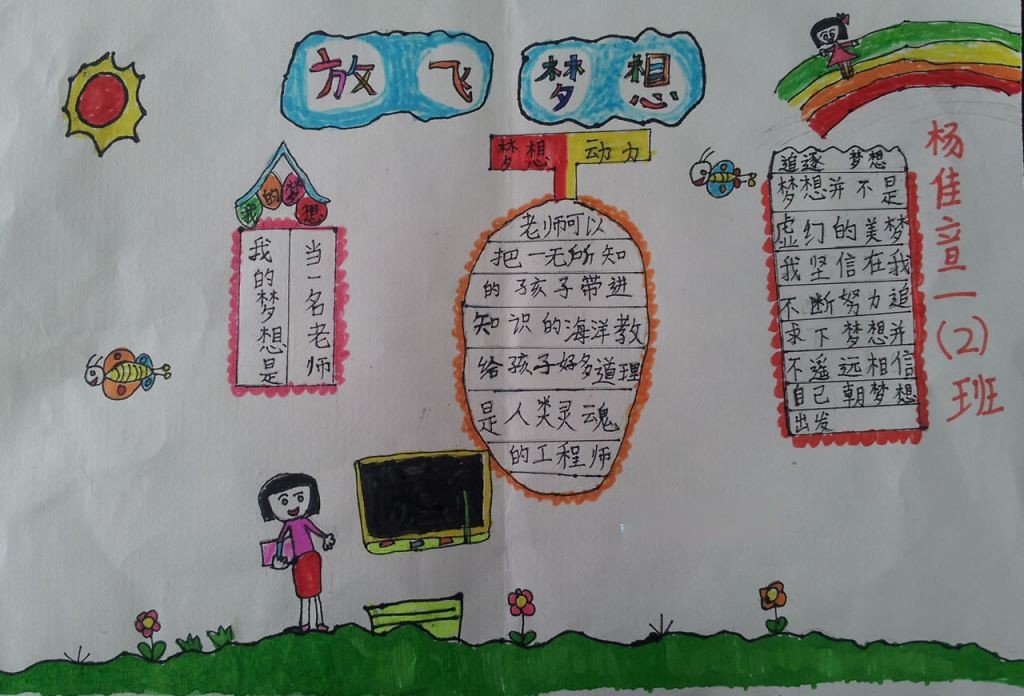 放飞梦想
我的梦想
我的梦想是
当一名老师
梦想动力
老师可以
把一无所知
的孩子带进
知识的海洋教
给孩子好多道理
是人类灵魂
的工程师
追逐 梦想
梦想并不是
虚幻的美梦
我坚信在我
不断努力追
求下梦想并
不遥远相信
自己朝梦想
出发
杨佳音一(2)班